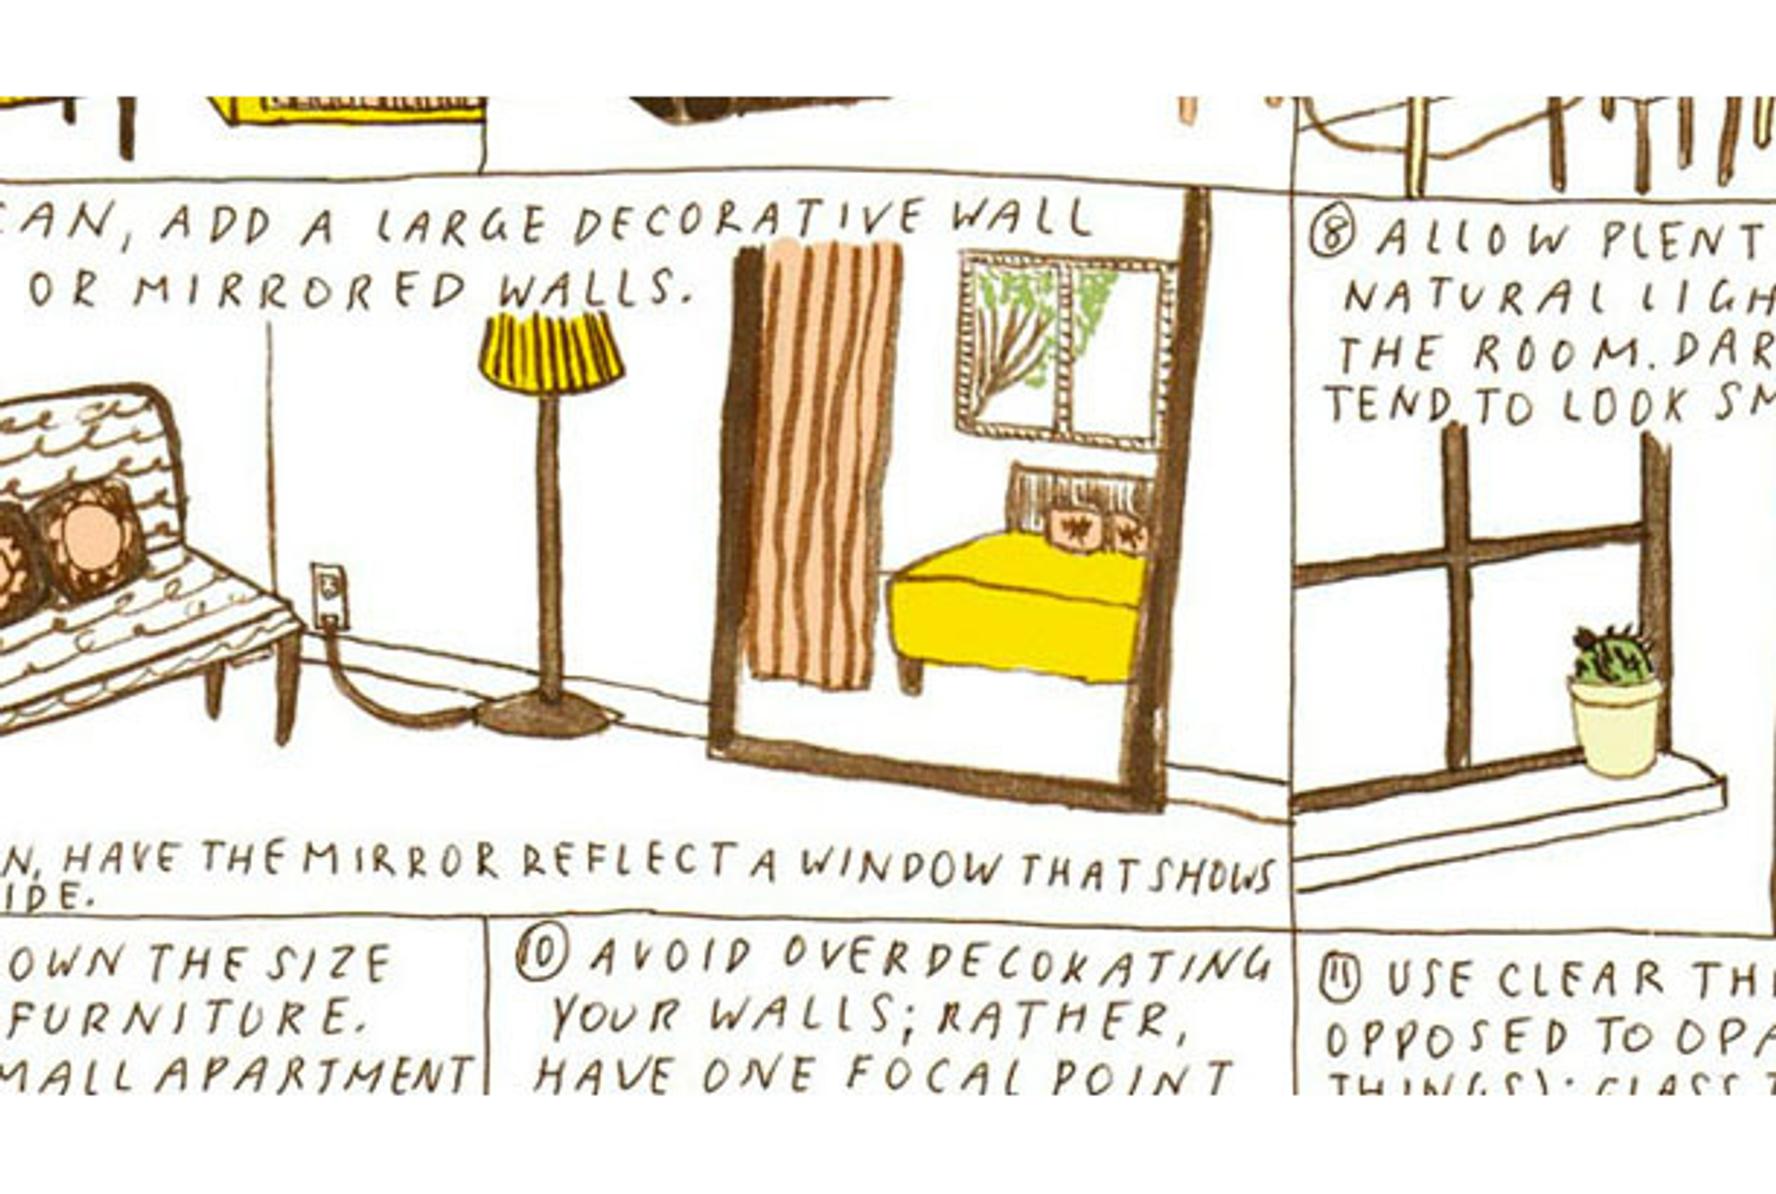 CAN, ADD A LARGE DECORATIVE WALL
OR MIRRORED WALLS.
HAVE THE MIRROR REFLECT A WINDOW THAT SHOWS
⑧ ALLOW
NATURAL
THE ROOM.
TEND TO LOOK
OWN THE SIZE
FURNITURE.
APARTMENT
⑩ AVOID OVERDECORATING
YOUR WALLS; RATHER,
HAVE ONE FOCAL POINT
⑪ USE CLEAR
OPPOSED TO